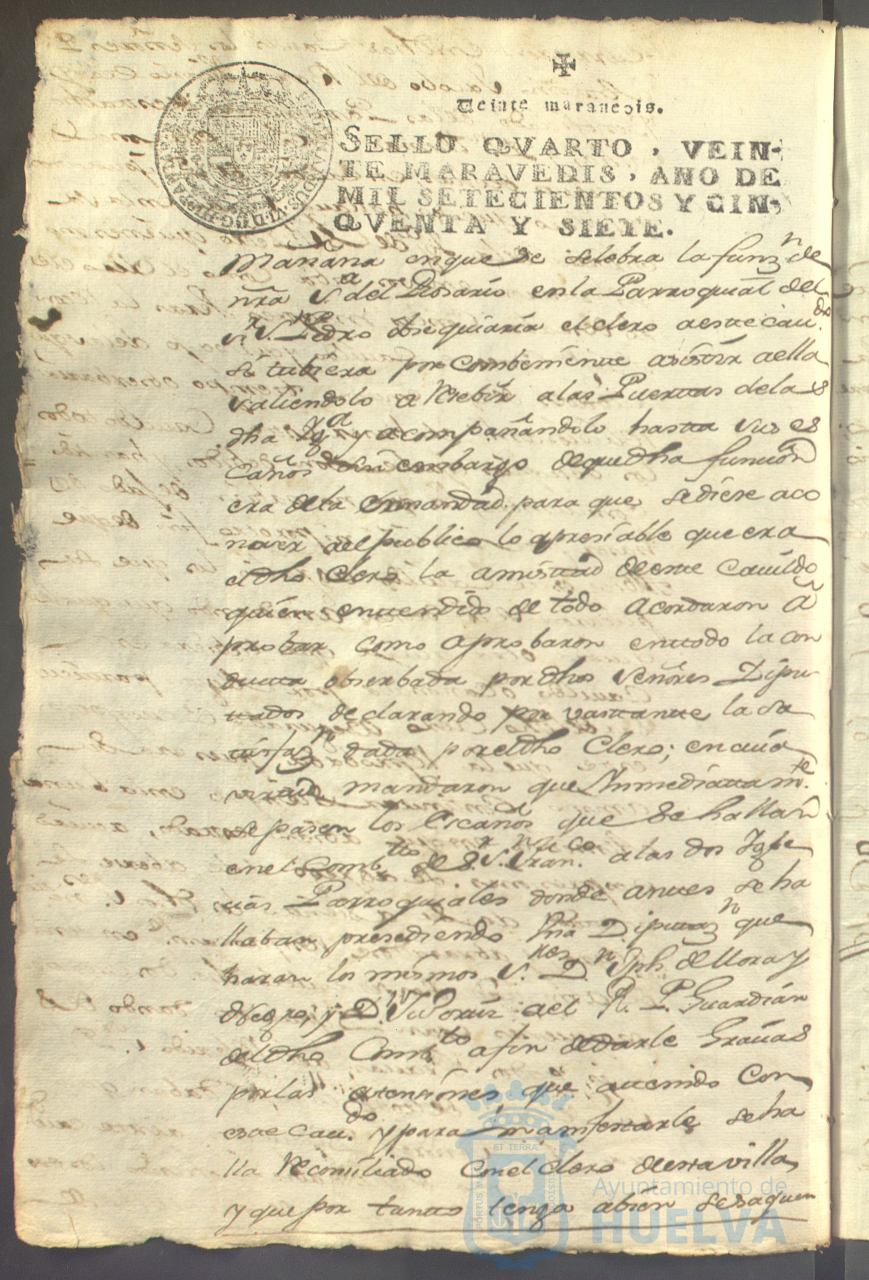 Veinte maravedis.
SELLO QVARTO, VEIN-
TE MARAVEDIS, AÑO DE
MIL SETECIENTOS Y CIN-
QVENTA Y SIETE.
Mañana en que se selebra la funz.n de
nra S.a del Rosario en la Parroquial del
S.r S.n Pedro obsequiaría el clero a este cau.do
si tubiera por combeniente asistir a ella
saliendolo a Resebir a las Puertas de la
dha Ygl.a y acompañandolo hasta sus es
caños sin embargo de que dha funcion
era de la Ermandad para que se diese a co
noser al publico lo apresiable que era
el dho Clero la amistad de este Cauildo
quien entendido de todo acordaron a
probar como aprobaron en todo la con
ducta obserbada por dhos señores Dipu
tados declarando por vastante la sa
tisfaz.n dada por el dho Clero; en cuia
virtud mandaron que Ynmediatam.te
se pasen los Escaños que se hallan
en el Comb.to de S.r S.n Fran.co a las dos Ygle
sias Parroquiales donde antes se ha
llaban presediendo Vna Diputaz.n que
haran los mismos S.res D.n Jph. de Mora y
Negro, y D.n al R. P. Guardian
del dho Comb.to a fin de darle Gracias
por las atensiones que a tenido con
este cau.do y para manifestarle se ha
lla Reconsiliado con el clero de esta villa
y que por tanto tenga a bien se saquen
ET TERRA
Ayuntamiento de
HUELVA